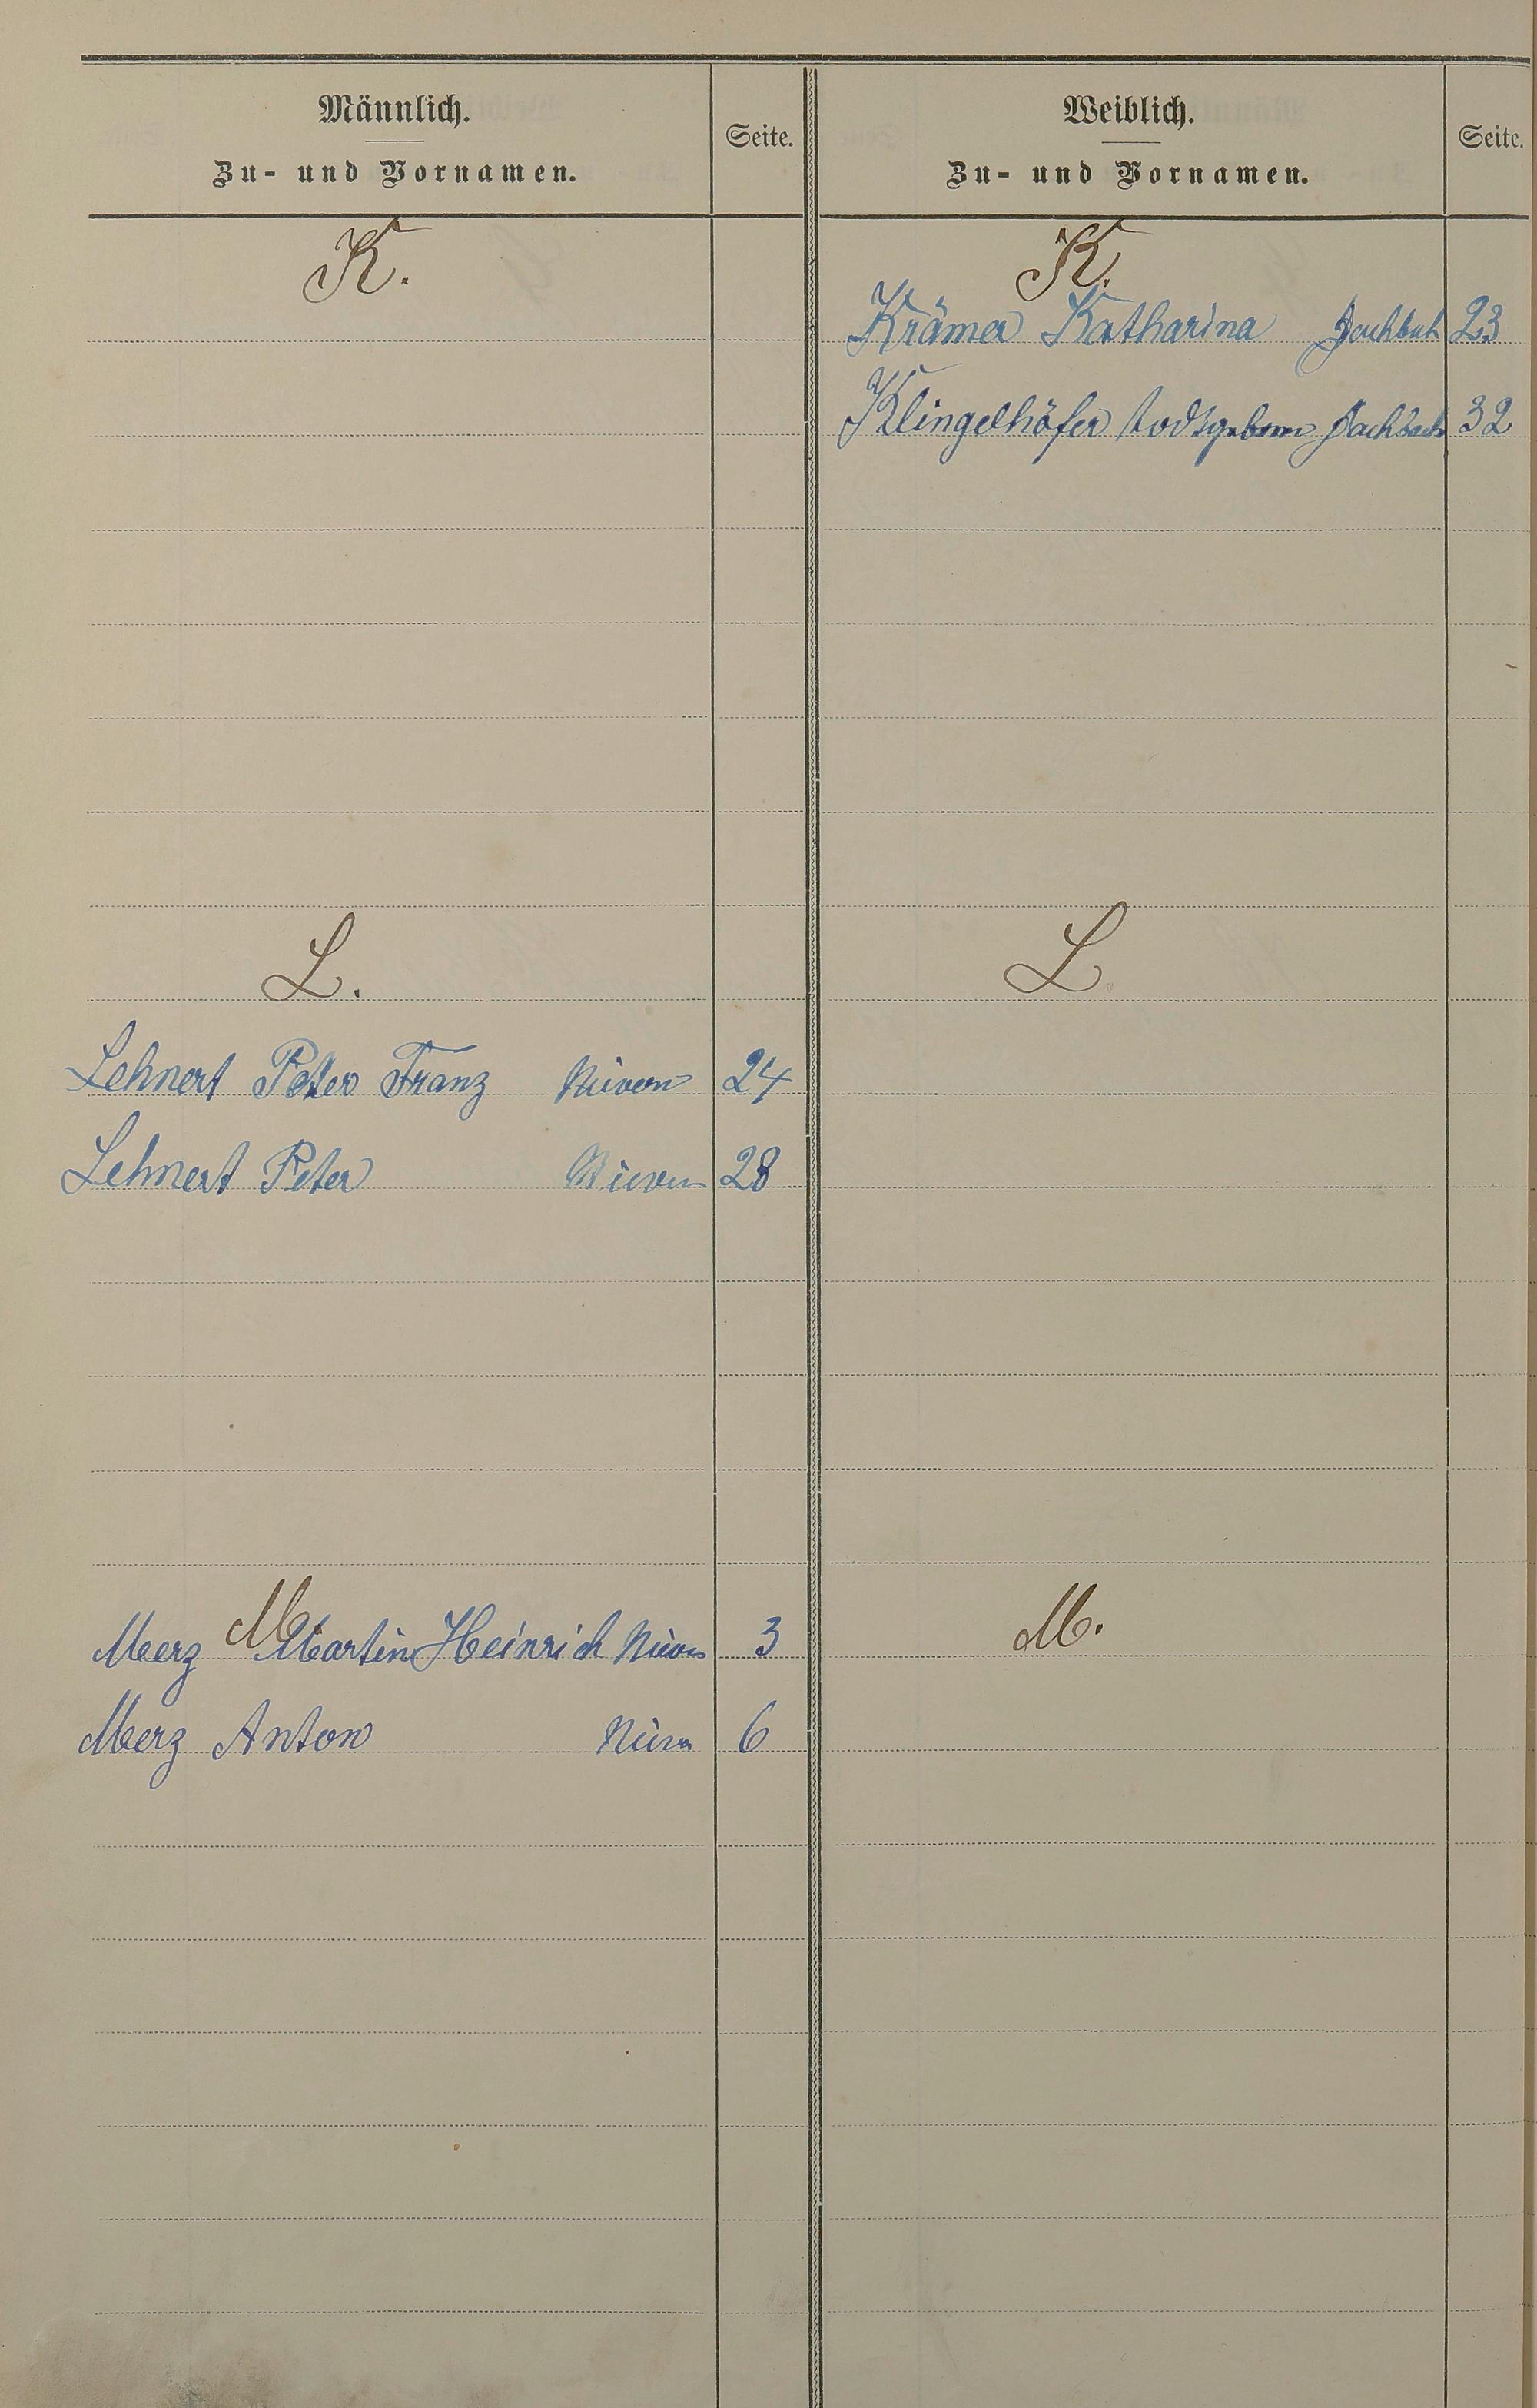 Männlich.
Zu- und Vornamen.
Seite.
K.
L.
Lehnert Peter Franz Nüven 24
Lehnert Peter Nüven 28
M.
Merz Martin Heinrich Nüven 3
Merz Anton 6
Weiblich.
Zu- und Vornamen.
Seite.
K.
Krämer Katharina 23
Klingelhöfer todtgeboren 32
L
M.